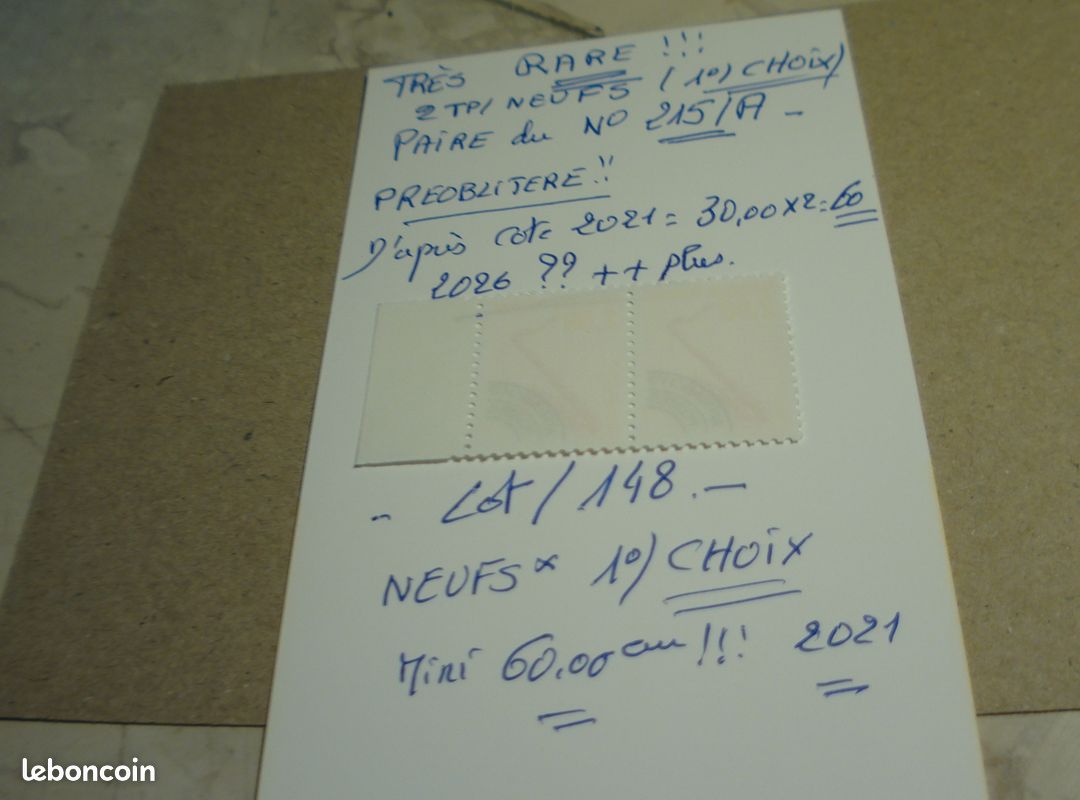 TRÈS RARE !!!
2 TP/ NEUFS (1°) CHOIX)
PAIRE du N° 215/A -
PREOBLITERE !!
D'après cote 2021 = 30,00 x 2 = 60
2026 ?? ++ plus.
- Lot / 148. -
NEUFS* 1°) CHOIX
Mini 60.00 !!! 2021
leboncoin